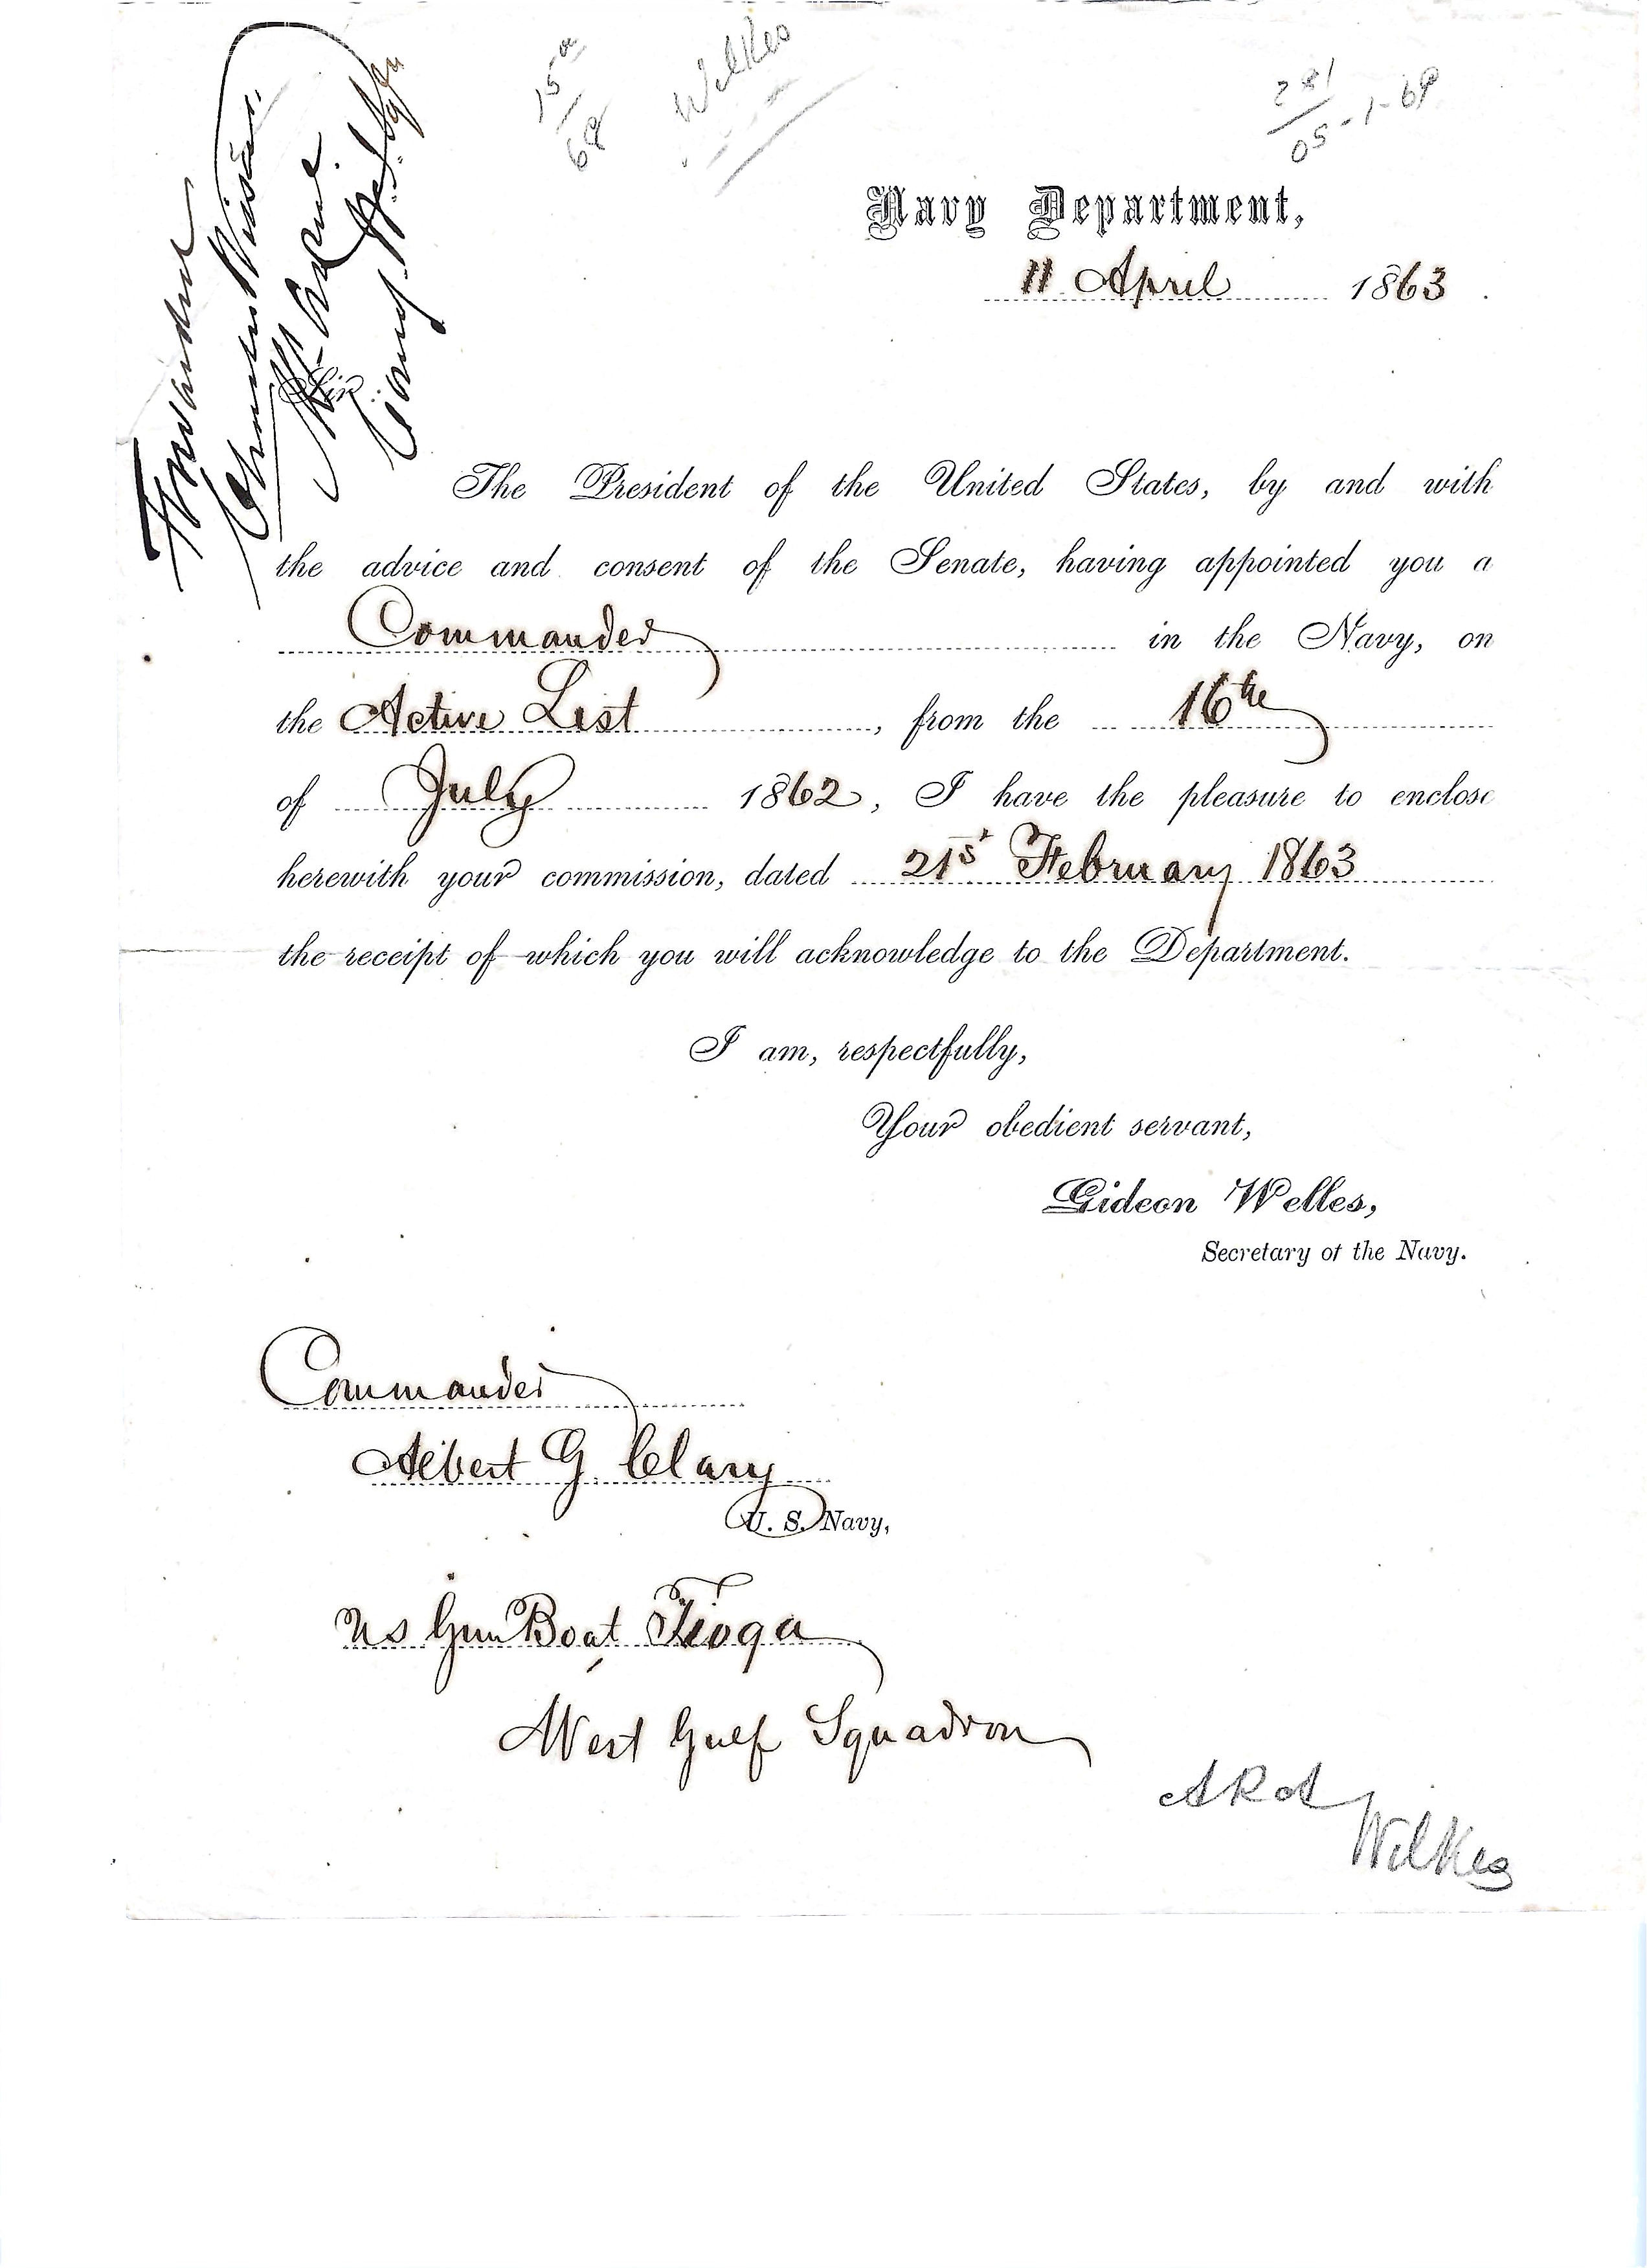 Forwarded
15a
68
Wilkes
281
05-1-69
Navy Department,
11 April 1863.
Sir:
The President of the United States, by and with
the advice and consent of the Senate, having appointed you a
Commander in the Navy, on
the Active List, from the 16th
of July 1862, I have the pleasure to enclose
herewith your commission, dated 21st February 1863
the receipt of which you will acknowledge to the Department.
I am, respectfully,
Your obedient servant,
Gideon Welles,
Secretary of the Navy.
Commander
Albert G. Clary
U. S. Navy,
US Gun Boat Tioga
West Gulf Squadron
ARA
Wilkes